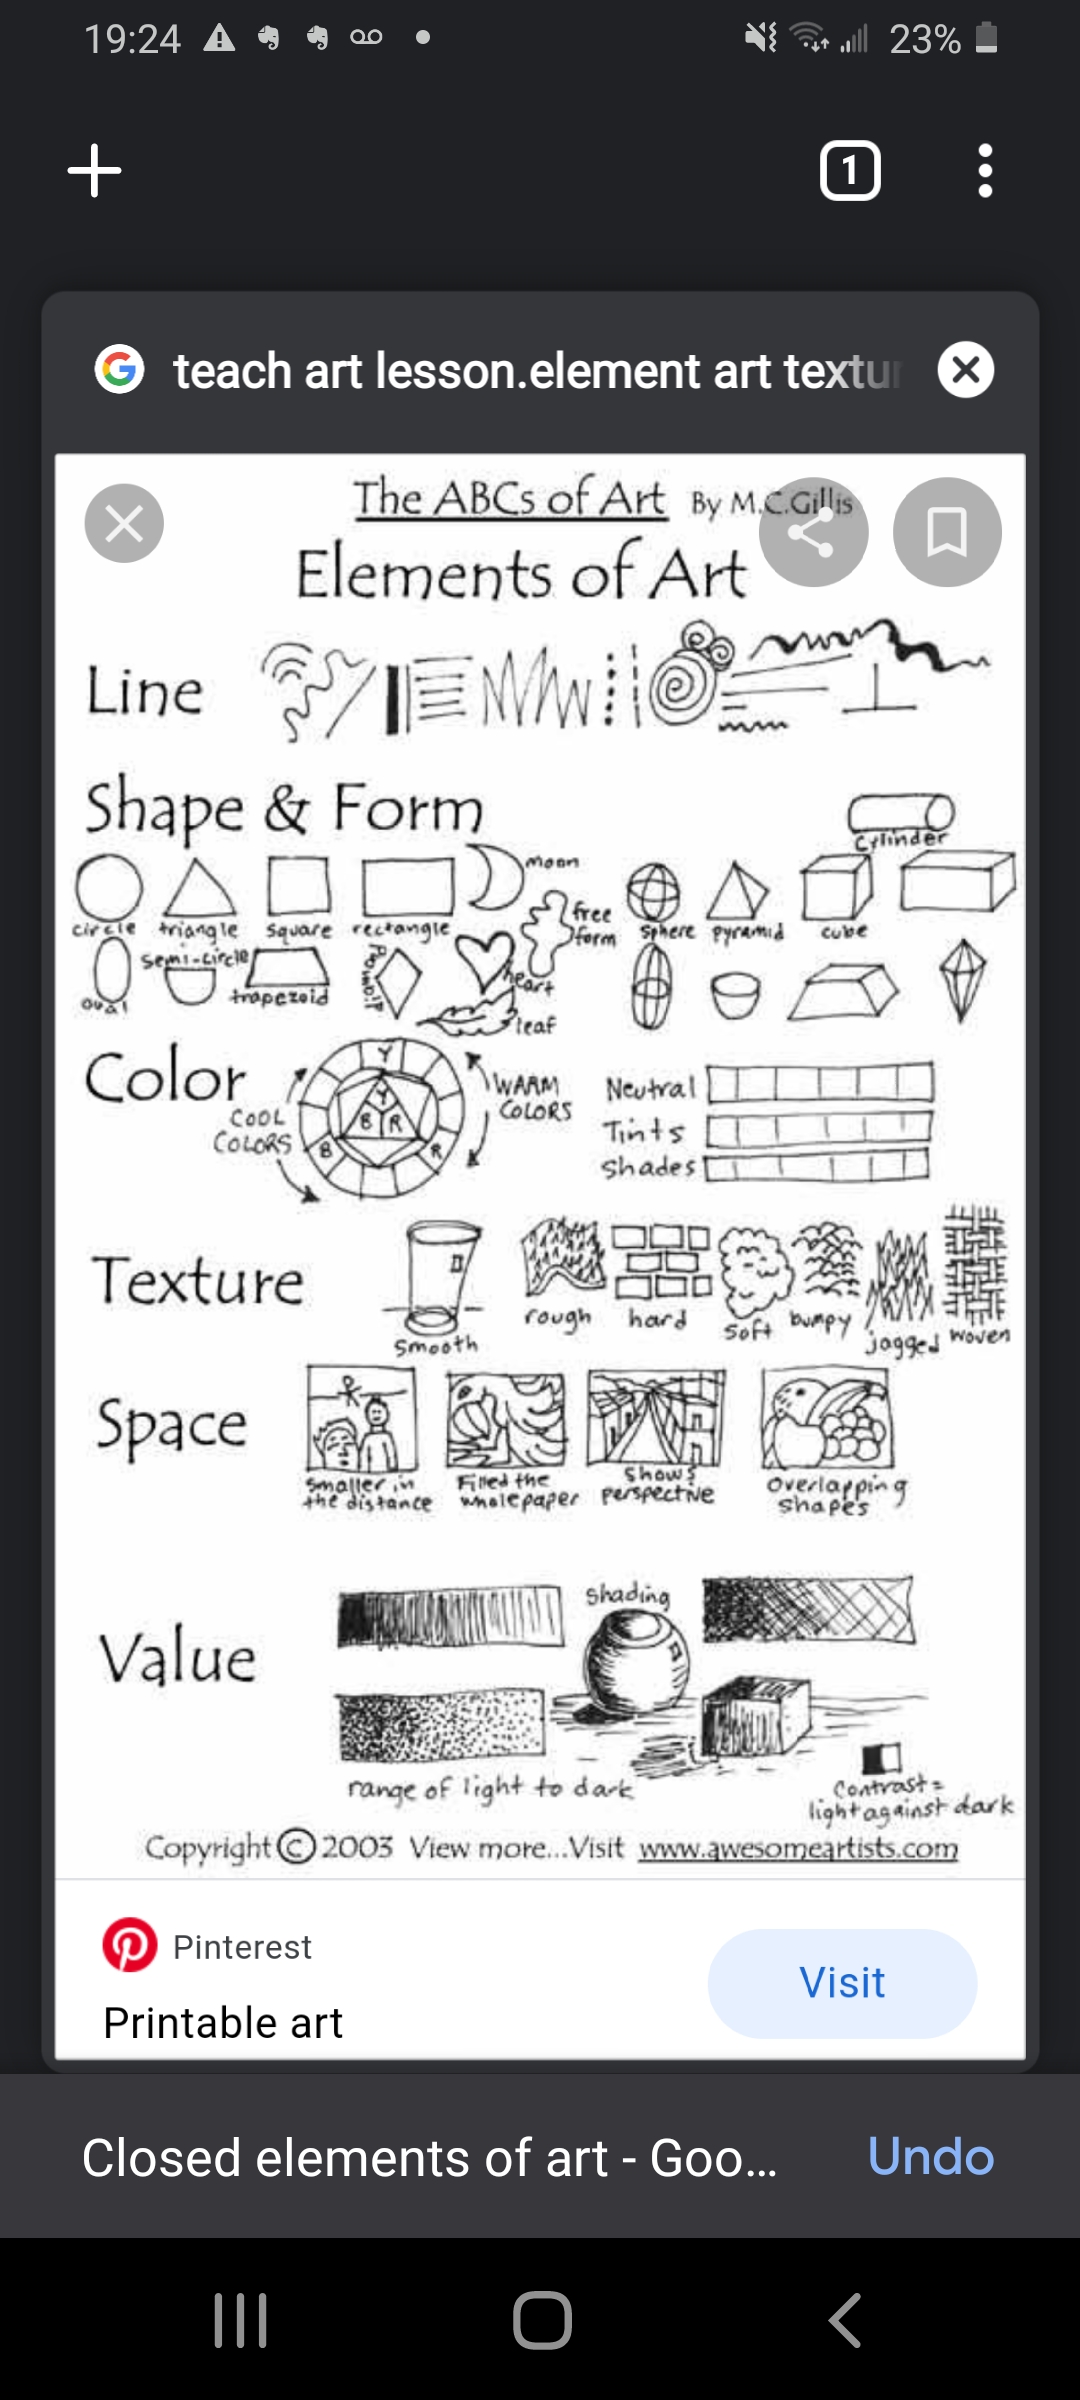 19:24
23%
1
teach art lesson.element art textur
The ABCs of Art By M.C.Gillis
Elements of Art
Line
Shape & Form
Cylinder
moon
circle triangle square rectangle
free form
sphere pyramid cube
oval
semi-circle
trapezoid
heart
leaf
Color
Y
Y
B R
B
R
COOL COLORS
WARM COLORS
Neutral
Tints
Shades
Texture
smooth
rough
hard
soft
bumpy
jagged
woven
Space
smaller in
the distance
Filled the
whole paper
shows
perspective
overlapping
shapes
Value
shading
range of light to dark
Contrast=
light against dark
Copyright © 2003 View more...Visit www.awesomeartists.com
Pinterest
Visit
Printable art
Closed elements of art - Goo...
Undo